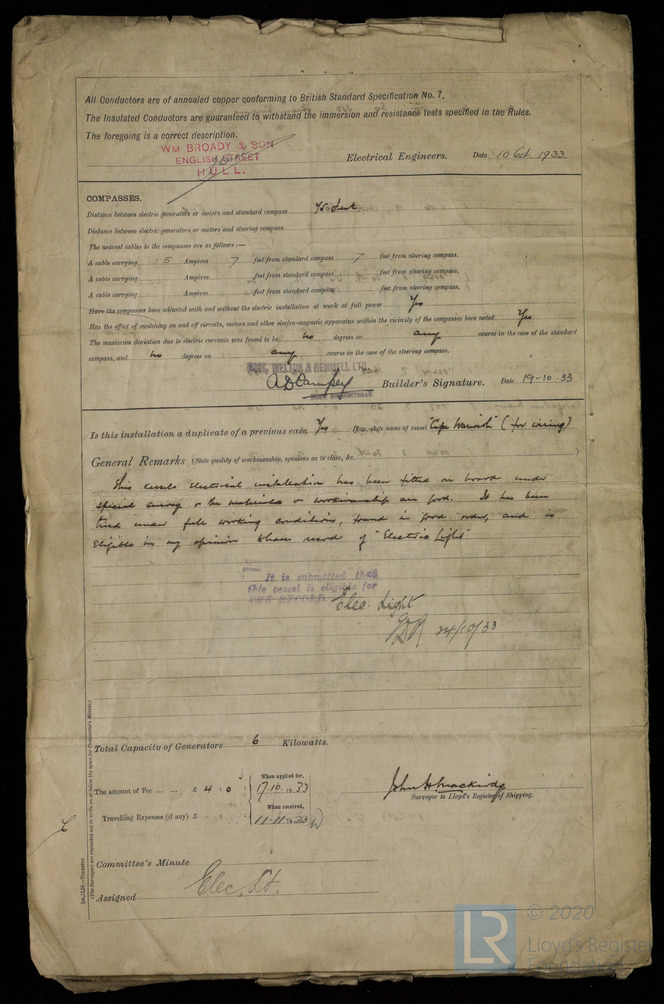 All Conductors are of annealed copper conforming to British Standard Specification No. 7.
The Insulated Conductors are guaranteed to withstand the immersion and resistance tests specified in the Rules.
The foregoing is a correct description.
WM BROADY & SON
ENGLISH STREET
HULL.
Electrical Engineers. Date 10 Oct. 1933
COMPASSES.
Distance between electric generators or motors and standard compass 75 feet
Distance between electric generators or motors and steering compass
The nearest cables to the compasses are as follows:—
A cable carrying 5 Ampères 7 feet from standard compass 7 feet from steering compass.
A cable carrying Ampères feet from standard compass, feet from steering compass,
A cable carrying Ampères feet from standard compass, feet from steering compass.
Have the compasses been adjusted with and without the electric installation at work at full power Yes
Has the effect of switching on and off circuits, motors and other electro-magnetic apparatus within the vicinity of the compasses been noted Yes
The maximum deviation due to electric currents was found to be No degrees on any course in the case of the standard
compass, and No degrees on any course in the case of the steering compass.
WELTON & GEMMELL LTD.
Builder's Signature. Date 19-10-33
Is this installation a duplicate of a previous case Yes If so, state name of vessel "Cape Warwick" (for wiring)
General Remarks (State quality of workmanship, opinions as to class, &c. )
This vessels electrical installation has been fitted on board under
special survey & the materials & workmanship are good. It has been
tried under full working conditions, found in good order, and is
Eligible in my opinion to have record of "Electric Light"
It is submitted that
this vessel is eligible for
THE RECORD. Elec: Light
24/10/33
Total Capacity of Generators 6 Kilowatts.
The amount of Fee ... ... £ 4 : 0 : When applied for, 17.10.1933
When received,
Travelling Expenses (if any) £ : : 11.11.1933
Surveyor to Lloyd's Register of Shipping.
Committee's Minute
Assigned Elec. Lt.
1m,12.28.—Transfer.
(The Surveyors are requested not to write on or below the space for Committee's Minute.)
LR
© 2020
Lloyd's Register
Foundation